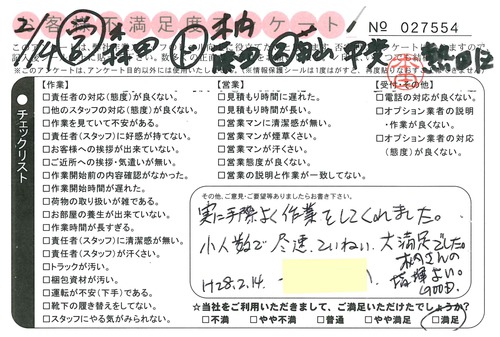 お客様不満足度アンケート!
No 027554
2/14 営 森田
チェックリスト
【作業】
□責任者の対応(態度)が良くない。
□他のスタッフの対応(態度)が良くない。
□作業を見ていて不安がある。
□責任者(スタッフ)に好感が持てない。
□お客様への挨拶が出来ていない。
□ご近所への挨拶・気遣いが無い。
□作業開始前の内容確認がなかった。
□作業開始時間が遅れた。
□荷物の取り扱いが雑である。
□お部屋の養生が出来ていない。
□作業時間が長すぎる。
□責任者(スタッフ)に清潔感が無い。
□責任者(スタッフ)が汗くさい。
□トラックが汚い。
□梱包資材が汚い。
□運転が不安(下手)である。
□靴下の履き替えをしてない。
□スタッフにやる気がみられない。
【営業】
□見積もり時間に遅れた。
□見積もり時間が長い。
□営業マンに清潔感が無い。
□営業マンが煙草くさい。
□営業マンが汗くさい。
□営業態度が良くない。
□営業の説明と作業が一致してない。
【受付・その他】
□電話の対応が良くない。
□オプション業者の説明
・作業が良くない。
□オプション業者の対応
(態度)が良くない。
その他、ご意見・ご要望等ありましたらお書き下さい。
実に手際よく作業をしてくれました。
小人数で尽速、ていねい、大満足でした。
木内さんの
指揮よい。
good.
H28.2.14.
☆当社をご利用いただきまして、ご満足いただけたでしょうか?
□不満 □やや不満 □普通 □やや満足 □満足